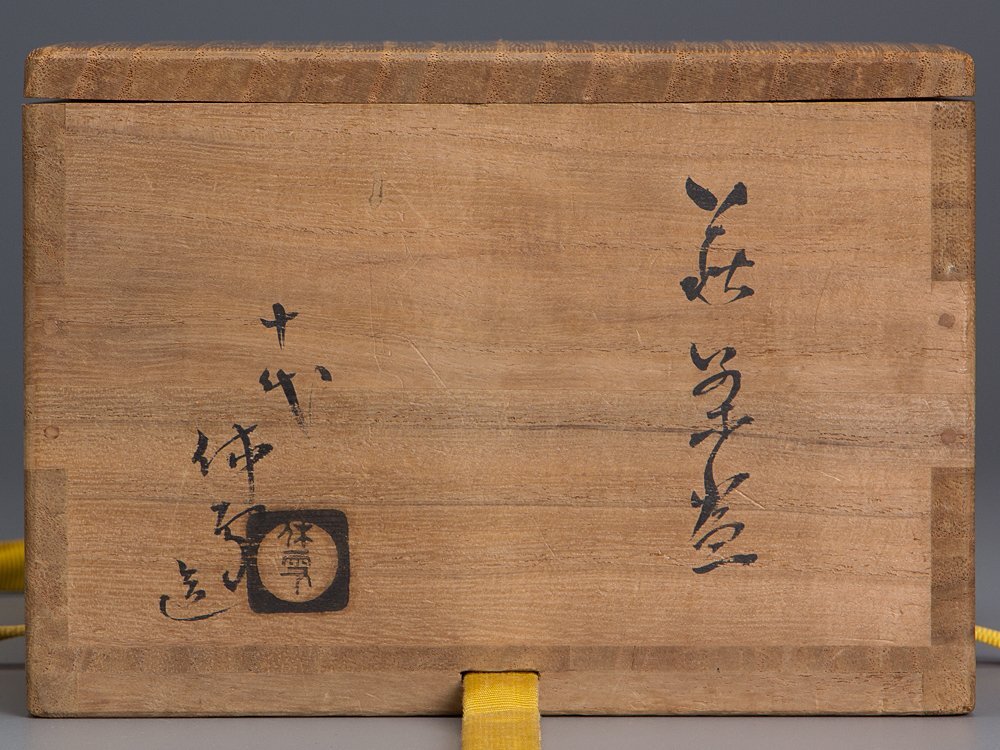 萩茶盌
十代 休雪造
休雪